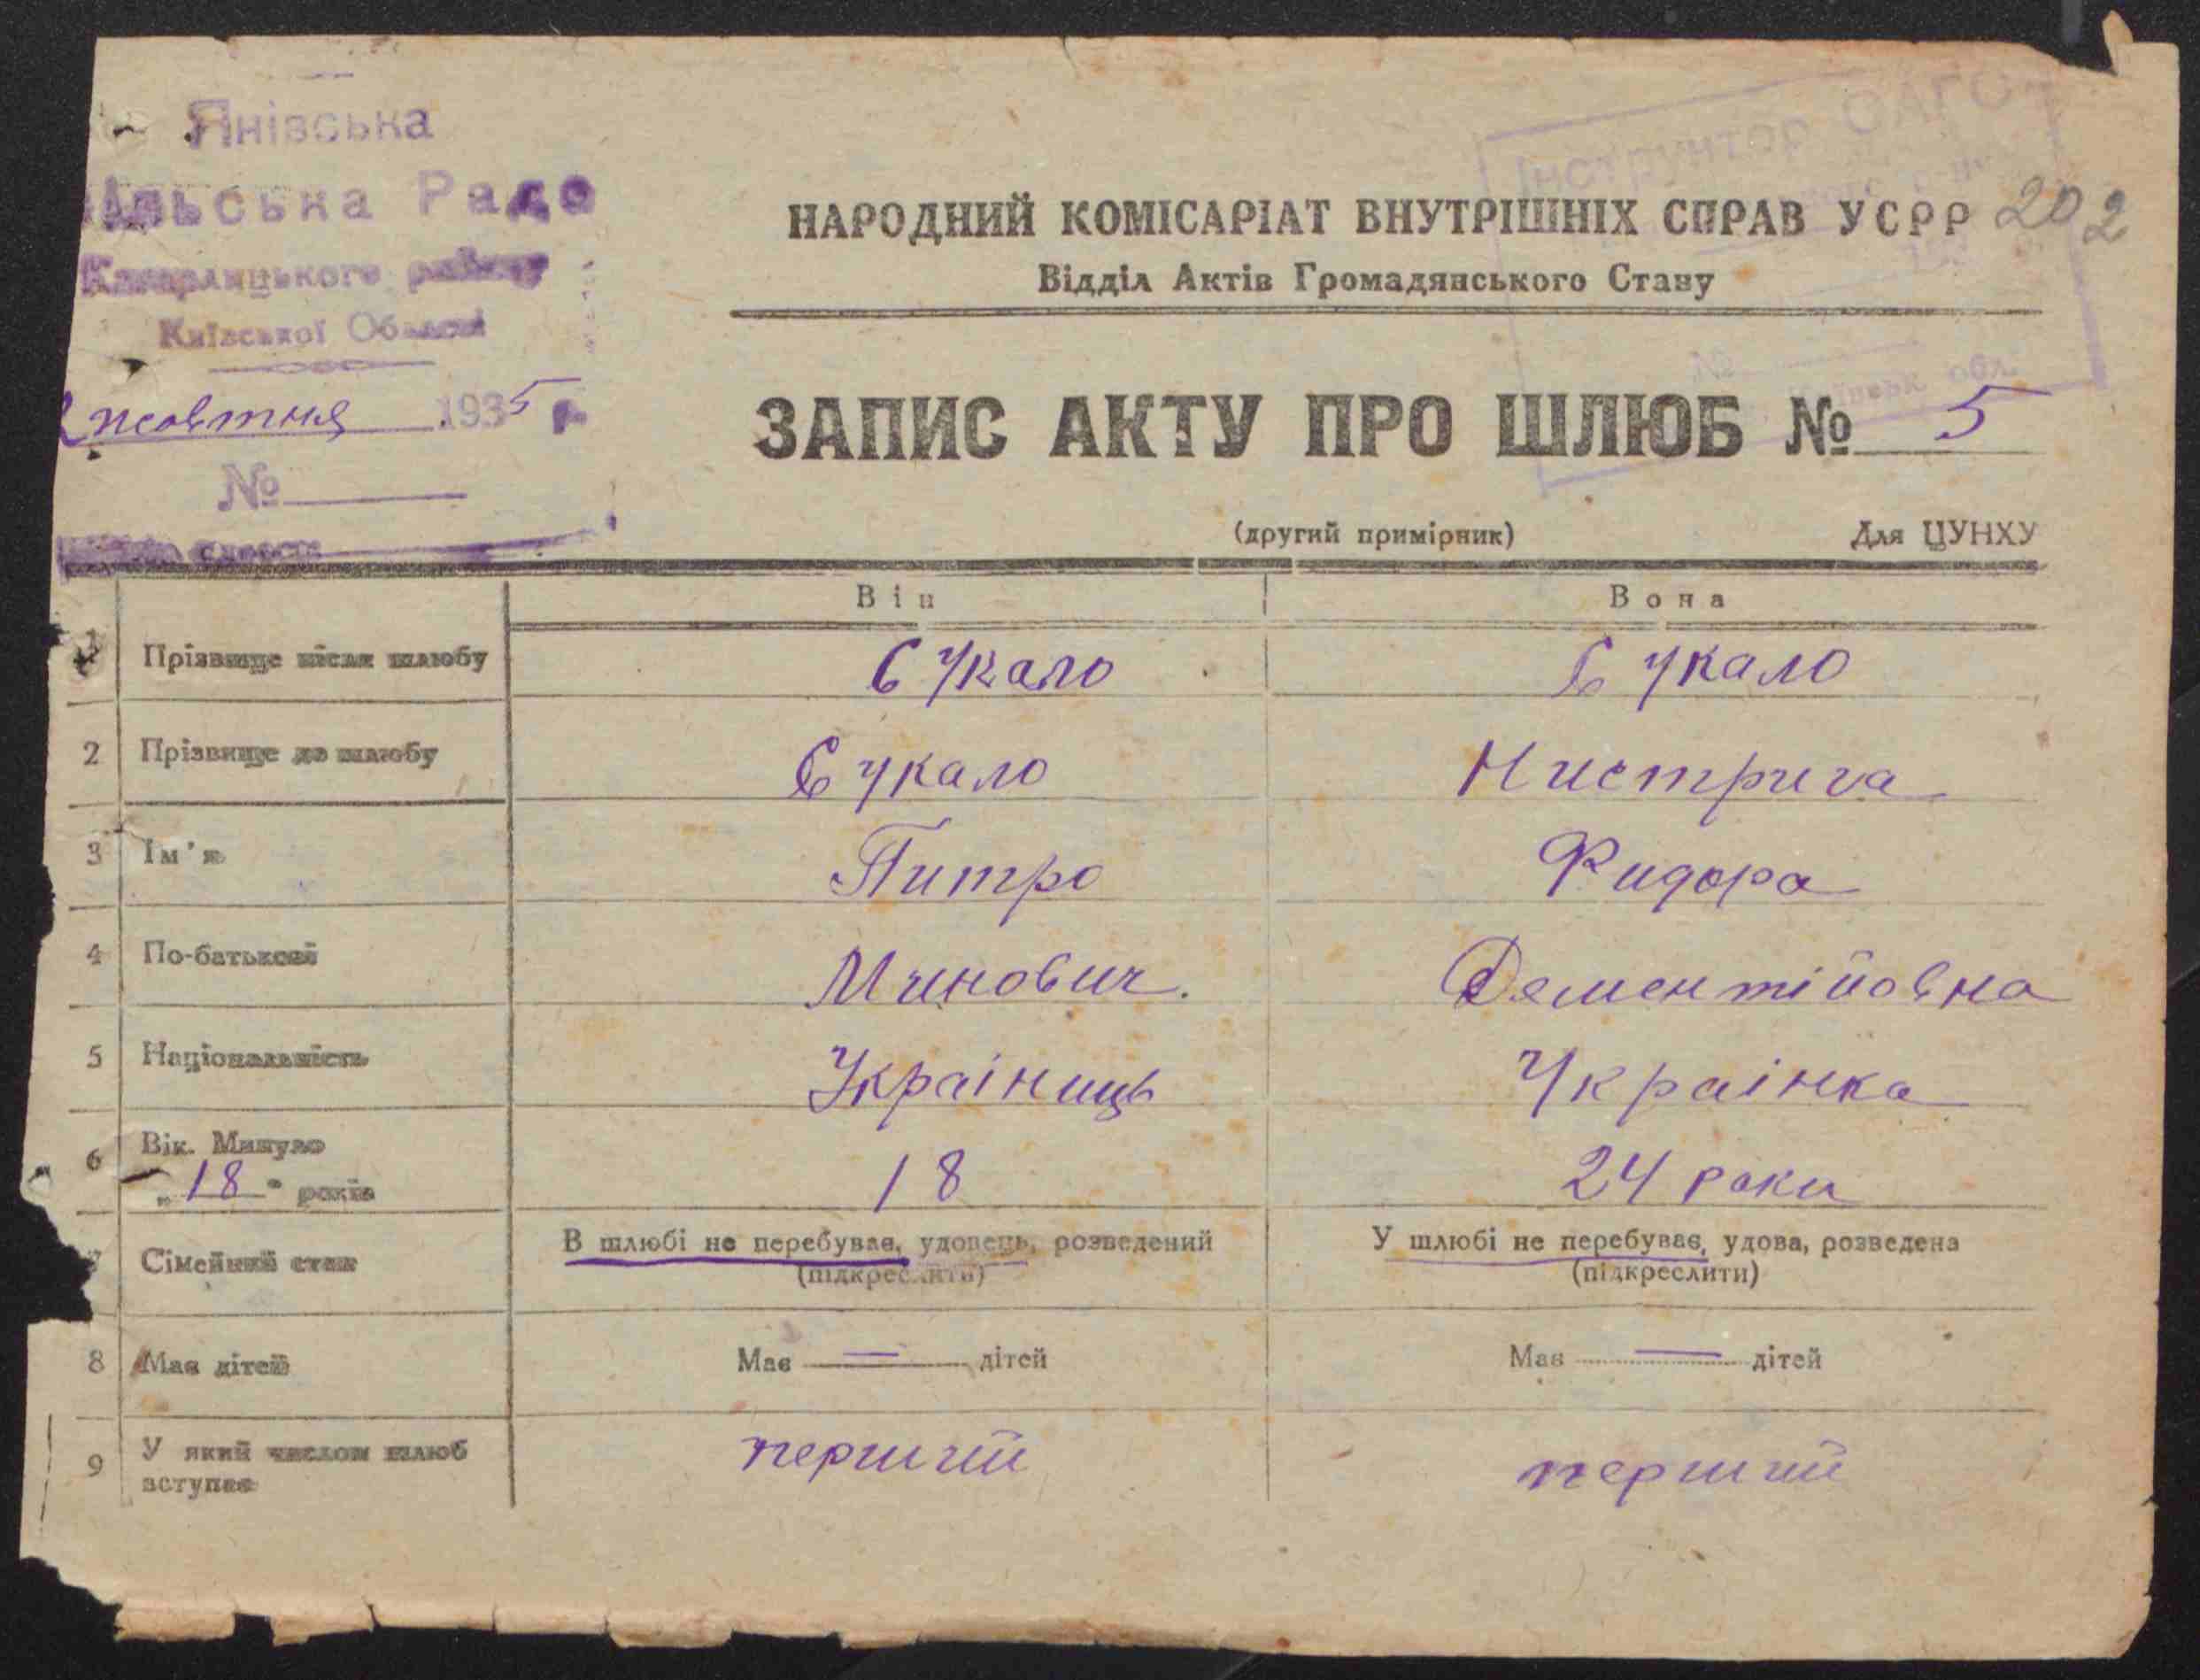 Янівська
Сільська Рада
Кагарлицького району
Київської Области
2 жовтня 1935 р.
№
Інструктор ОАГС
№
обл.
202
НАРОДНИЙ КОМІСАРІАТ ВНУТРІШНІХ СПРАВ УСРР
Відділ Актів Громадянського Стану
ЗАПИС АКТУ ПРО ШЛЮБ № 5
(другий примірник) Для ЦУНХУ
Він Вона
1 Прізвище після шлюбу Сукало Сукало
2 Прізвище до шлюбу Сукало Нистрига
3 Ім'я Питро Фидора
4 По-батькові Минович. Дементійовна
5 Національність Украіниць Украінка
6 Вік. Минуло
„18" років 18 24 роки
7 Сімейний стан В шлюбі не перебуває, удовець, розведений У шлюбі не перебуває, удова, розведена
(підкреслити) (підкреслити)
8 Має дітей Має — дітей Має — дітей
9 У який числом шлюб
вступає перший перший